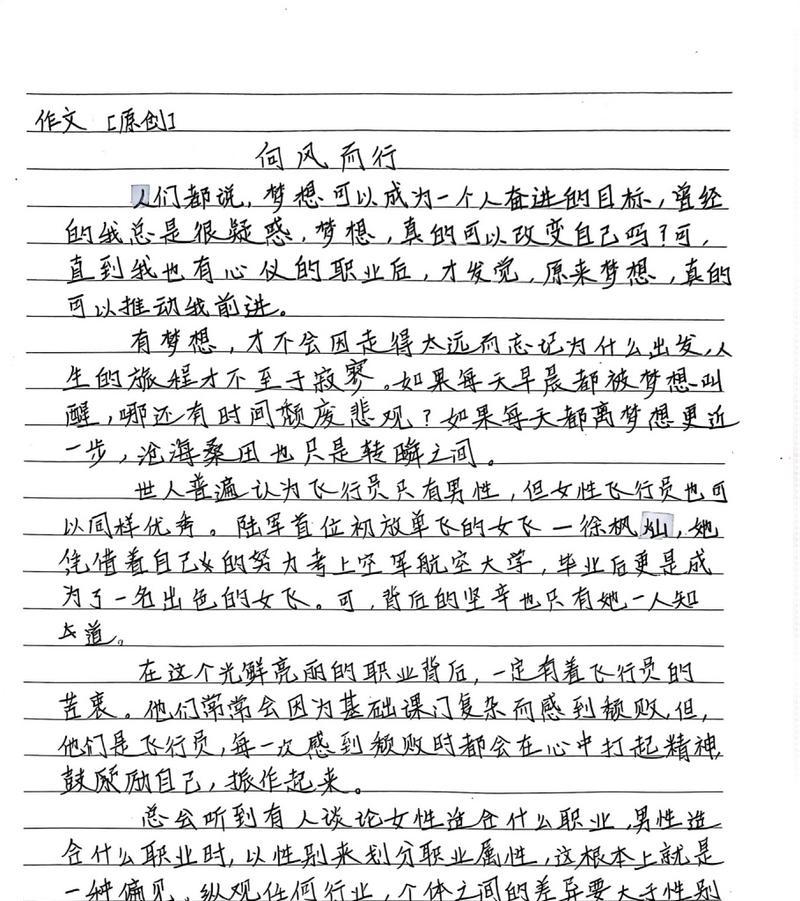 作文 [原创]
向风而行
人们都说,梦想可以成为一个人奋进的目标,曾经
的我总是很疑惑,梦想,真的可以改变自己吗?可,
直到我也有心仪的职业后,才发觉,原来梦想,真的
可以推动我前进。
有梦想,才不会因走得太远而忘记为什么出发,人
生的旅程才不至于寂寥。如果每天早晨都被梦想叫
醒,哪还有时间颓废悲观?如果每天都离梦想更近
一步,沧海桑田也只是转瞬之间。
世人普遍认为飞行员只有男性,但女性飞行员也可
以同样优秀。陆军首位初放单飞的女飞一徐枫灿,她
凭借着自己的努力考上空军航空大学,毕业后更是成
为了一名出色的女飞。可,背后的坚辛也只有她一人知
道。
在这个光鲜亮丽的职业背后,一定有着飞行员的
苦衷。他们常常会因为基础课门复杂而感到颓败,但,
他们是飞行员,每一次感到颓败时都会在心中打起精神,
鼓励自己,振作起来。
总会听到有人谈论女性适合什么职业,男性适
合什么职业时,以性别来划分职业属性,这根本上就是
一种偏见。纵观任何行业,个体之间的差异要大于性别